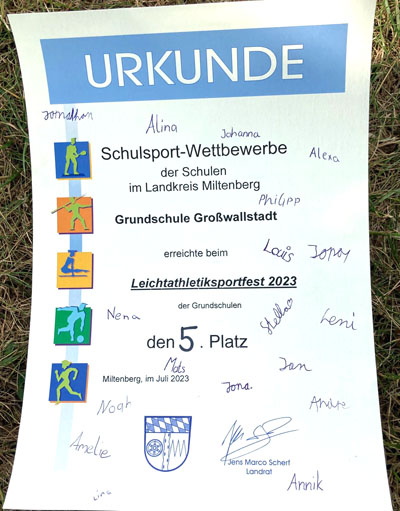 URKUNDE
Jonathan
Alina
Johanna
Schulsport-Wettbewerbe
Alexa
der Schulen
im Landkreis Miltenberg
Philipp
Grundschule Großwallstadt
erreichte beim
Louis
Leichtathletiksportfest 2023
der Grundschulen
Nena
Stella
Leni
den 5. Platz
Mats
Jan
Miltenberg, im Juli 2023
Jona.
Noah
Amelie
Jens Marco Scherf
Landrat
Annik